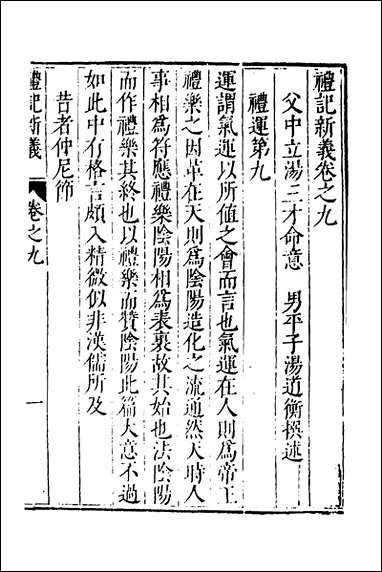 禮記新義卷之九
父中立湯三才命意　男平子湯道衡撰述
禮運第九
運謂氣運以所値之會而言也氣運在人則爲帝王
禮樂之因革在天則爲陰陽造化之流通然天時人
事相爲符應禮樂陰陽相爲表裏故其始也法陰陽
而作禮樂其終也以禮樂而贊陰陽此篇大意不過
如此中有格言頗入精微似非漢儒所及
昔者仲尼節
禮記新義
卷之九
一